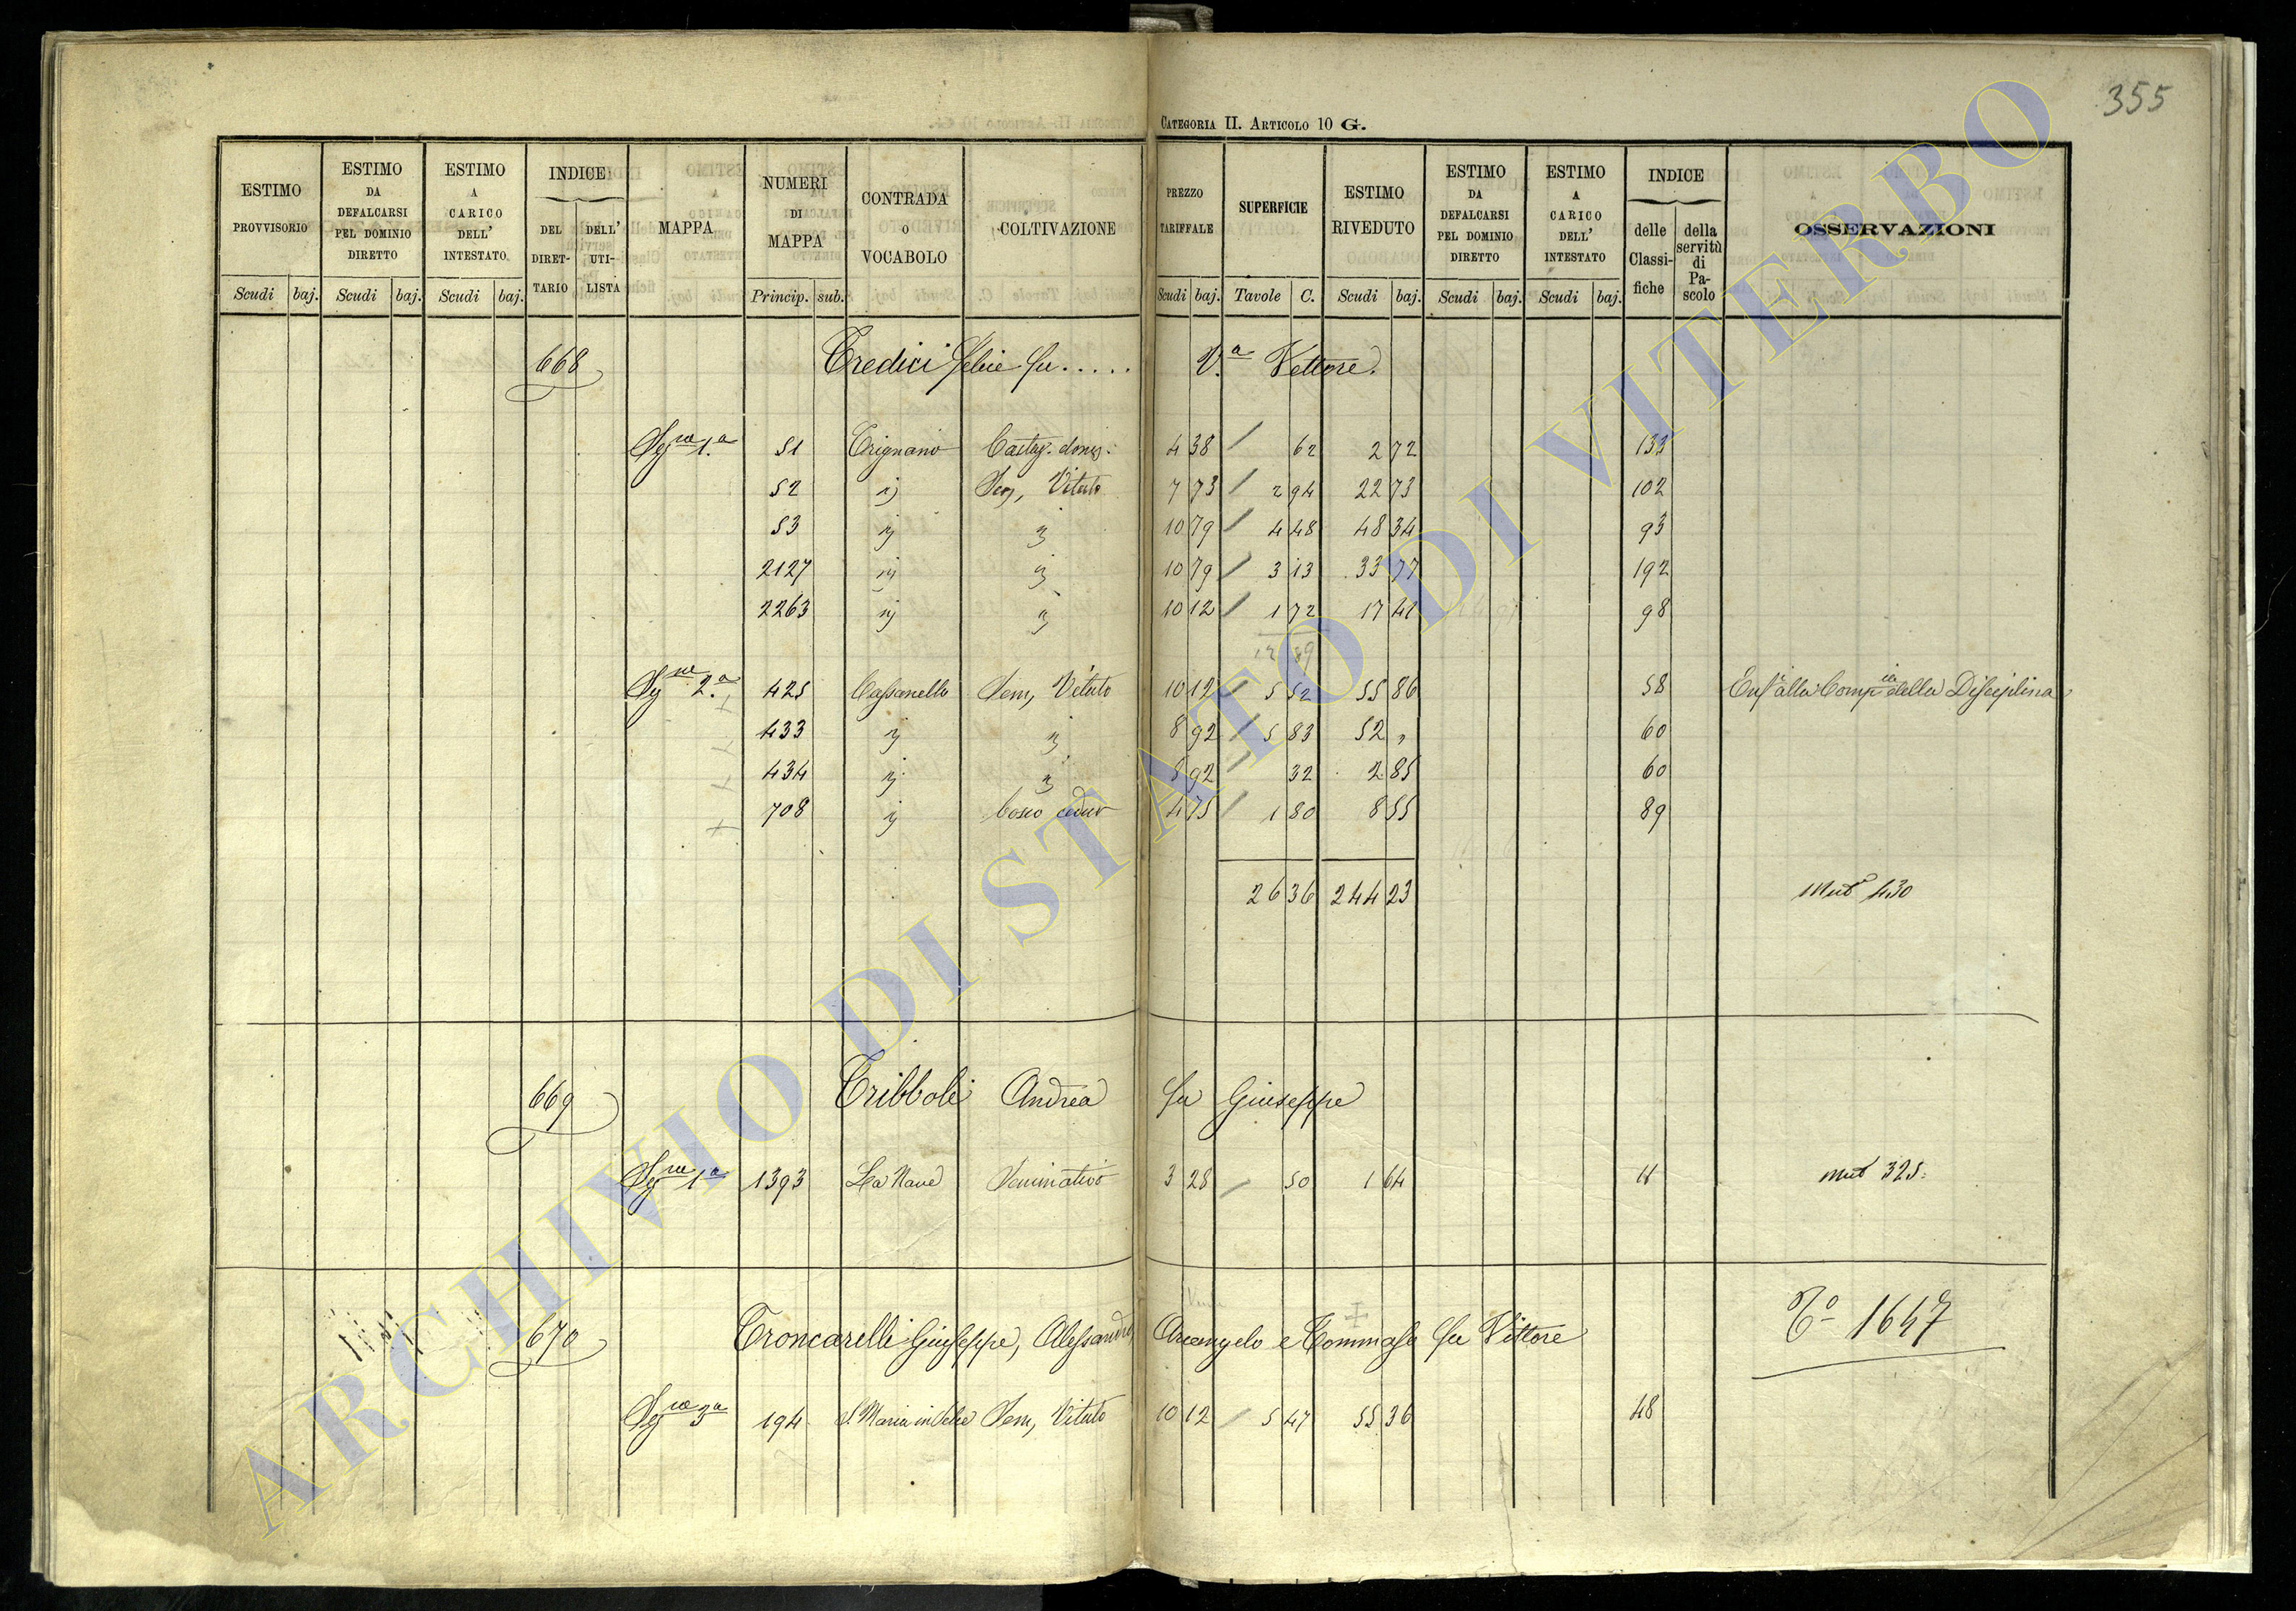 355
CATEGORIA II. ARTICOLO 10 G.
ESTIMO PROVVISORIO | ESTIMO DA DEFALCARSI PEL DOMINIO DIRETTO | ESTIMO A CARICO DELL' INTESTATO | INDICE DEL DIRETTARIO | DELL' UTILISTA | MAPPA | NUMERI DI MAPPA | CONTRADA O VOCABOLO | COLTIVAZIONE | PREZZO TARIFFALE | SUPERFICIE | ESTIMO RIVEDUTO | ESTIMO DA DEFALCARSI PEL DOMINIO DIRETTO | ESTIMO A CARICO DELL' INTESTATO | INDICE delle Classifiche | della servitù di Pascolo | OSSERVAZIONI
Scudi baj. Scudi baj. Scudi baj. Princip. sub. Scudi baj. Tavole C. Scudi baj. Scudi baj. Scudi baj.
668 Tredici Felice fu ..... Va Vettore.
Sgne 1a 51 Trignano Castag. domes: 4 38 62 2 72 133
52 ij Sem, Vitato 7 73 2 94 22 73 102
53 ij ij 10 79 4 48 48 34 93
2127 ij ij 10 79 3 13 33 77 192
2263 ij ij 10 12 1 72 17 41 98
12 89
Sgne 2a 425 Cassanella Sem, Vitato 10 12 5 52 55 86 58 Enfa alla Compia della Disciplina
433 ij ij 8 92 5 83 52 " 60
434 ij ij 8 92 32 2 85 60
708 ij bosco ceduo 4 75 1 80 8 55 89
26 36 244 23 Muta 430
669 Tribboli Andrea fu Giuseppe
Sgne 1a 1393 La Nave Seminativo 3 28 50 1 64 11 mut 325.
670 Troncarelli Giuseppe, Alessandro, Arcangelo e Tommaso fu Vittore To 1647
Sgne 3a 194 S. Maria in Selce Sem, Vitato 10 12 5 47 55 36 48
ARCHIVIO DI STATO DI VITERBO